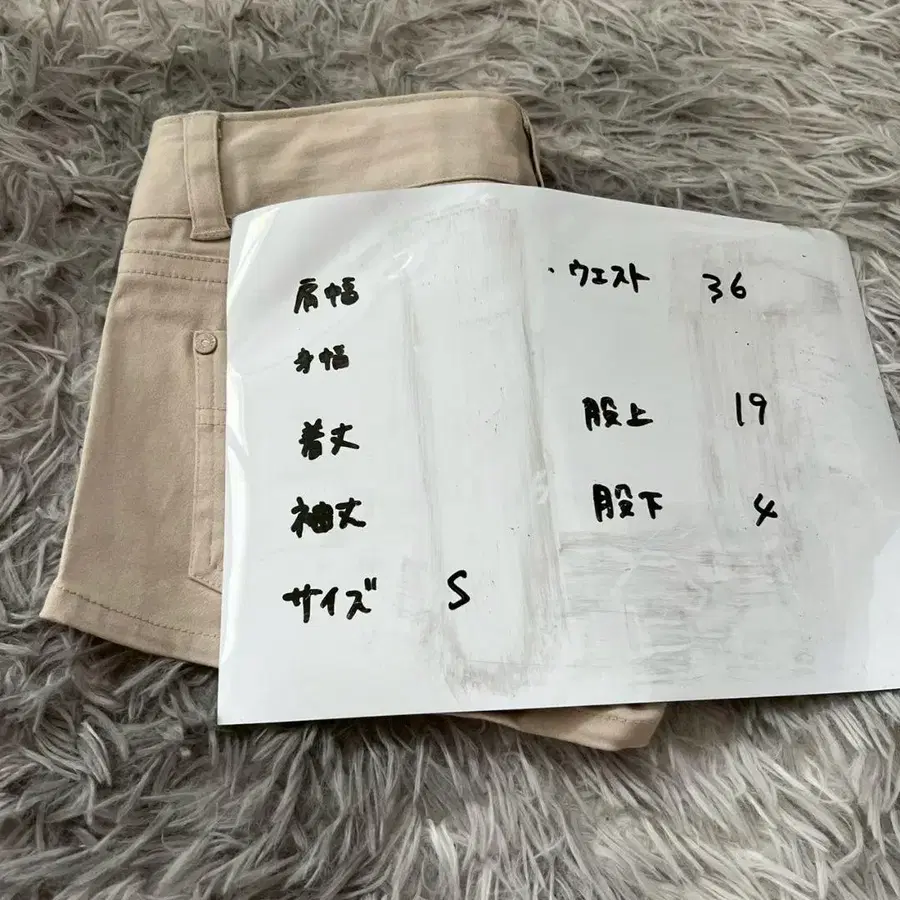 肩幅
身幅
着丈
袖丈
サイズ S
・ウエスト 36
股上 19
股下 4